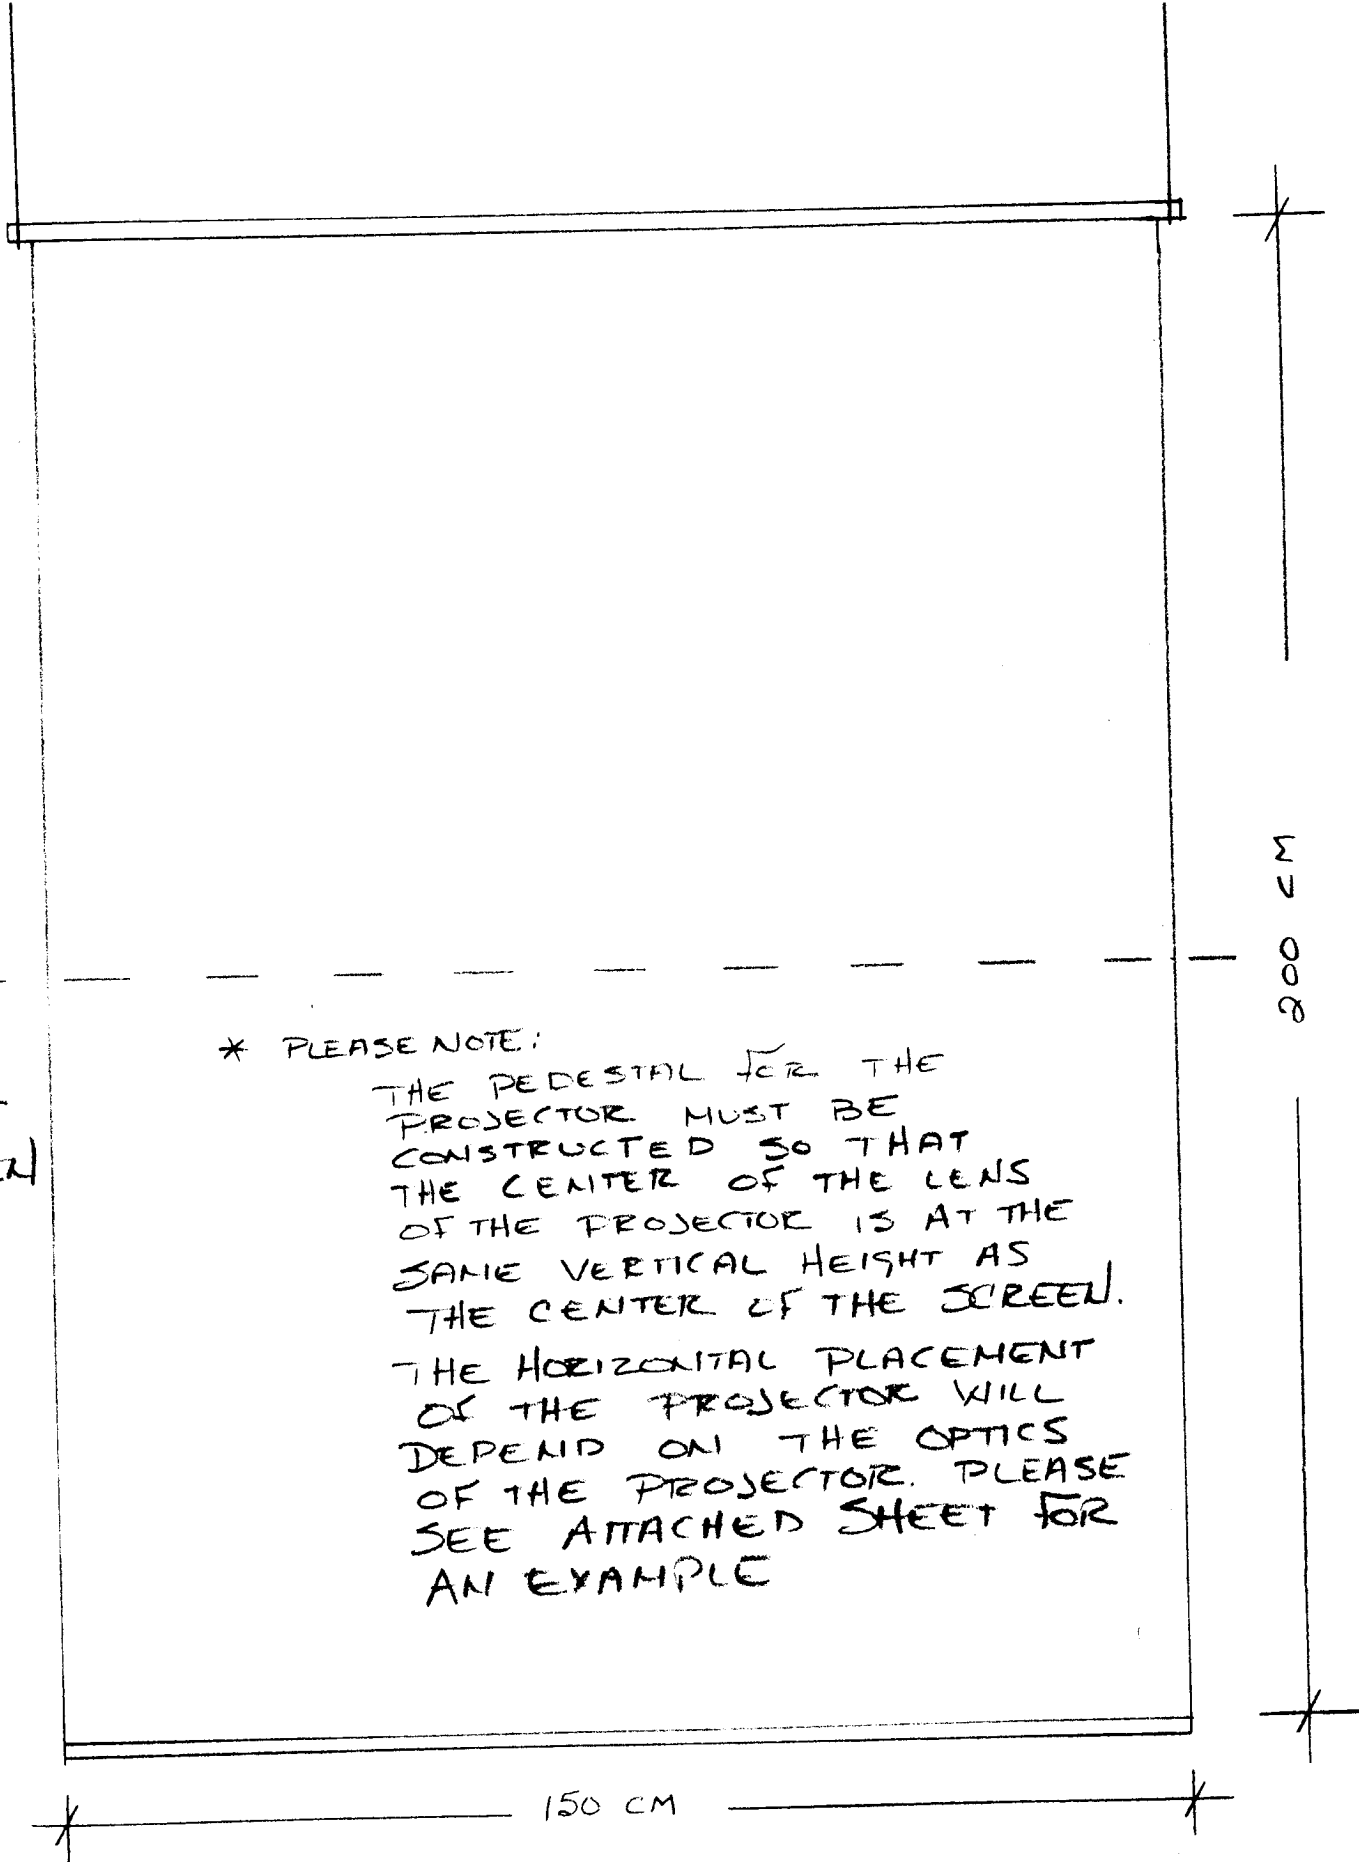 200 CM
* PLEASE NOTE:
THE PEDESTAL FOR THE
PROJECTOR MUST BE
CONSTRUCTED SO THAT
THE CENTER OF THE LENS
OF THE PROJECTOR IS AT THE
SAME VERTICAL HEIGHT AS
THE CENTER OF THE SCREEN.
THE HORIZONTAL PLACEMENT
OF THE PROJECTOR WILL
DEPEND ON THE OPTICS
OF THE PROJECTOR. PLEASE
SEE ATTACHED SHEET FOR
AN EXAMPLE
150 CM